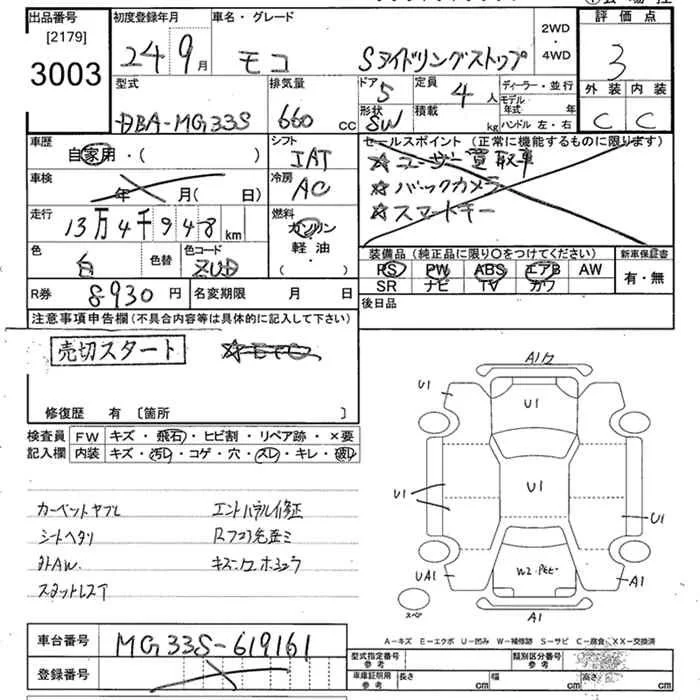 出品番号 初度登録年月 車名・グレード 2WD・4WD 評価点
[2179]
3003 24 9月 モコ Sアイドリングストップ 3
型式 排気量 ドア 5 定員 4人 ディーラー・並行 外装 内装
モデル年式 年
DBA-MG33S 660 cc 形状 SW 積載 kg ハンドル 左・右 C C
車歴 シフト セールスポイント (正常に機能するものに限ります)
自家用・( ) IAT ☆ユーザー買取車
車検 年 月( 日) 冷房 AC ☆バックカメラ
☆スマートキー
走行 13万4千948km 燃料 ガソリン
軽油
・( )
色 白 色替 色コード ZUD
装備品 (純正品に限り○をつけてください) 新車保証書
PS PW ABS エアB AW 有・無
SR ナビ TV カワ
R券 8930円 名変期限 月 日 後日品
注意事項申告欄 (不具合内容等は具体的に記入して下さい)
売切スタート
修復歴 有 [箇所 ]
検査員 FW キズ・飛石・ヒビ割・リペア跡・×要
記入欄 内装 キズ・汚レ・コゲ・穴・スレ・キレ・破レ
カーペットヤブレ
シートヘタリ
外AW
A1
U1
U1
U1
U1
U1
W2
UA1
A1
スペア
A1
A-キズ E-エクボ U-凹み W-補修跡 S-サビ C-腐食 XX-交換済
車台番号 MG33S-619161
登録番号
型式指定番号 参考 類別区分番号 参考
車庫証明用 参考 長さ cm 幅 cm 高さ cm